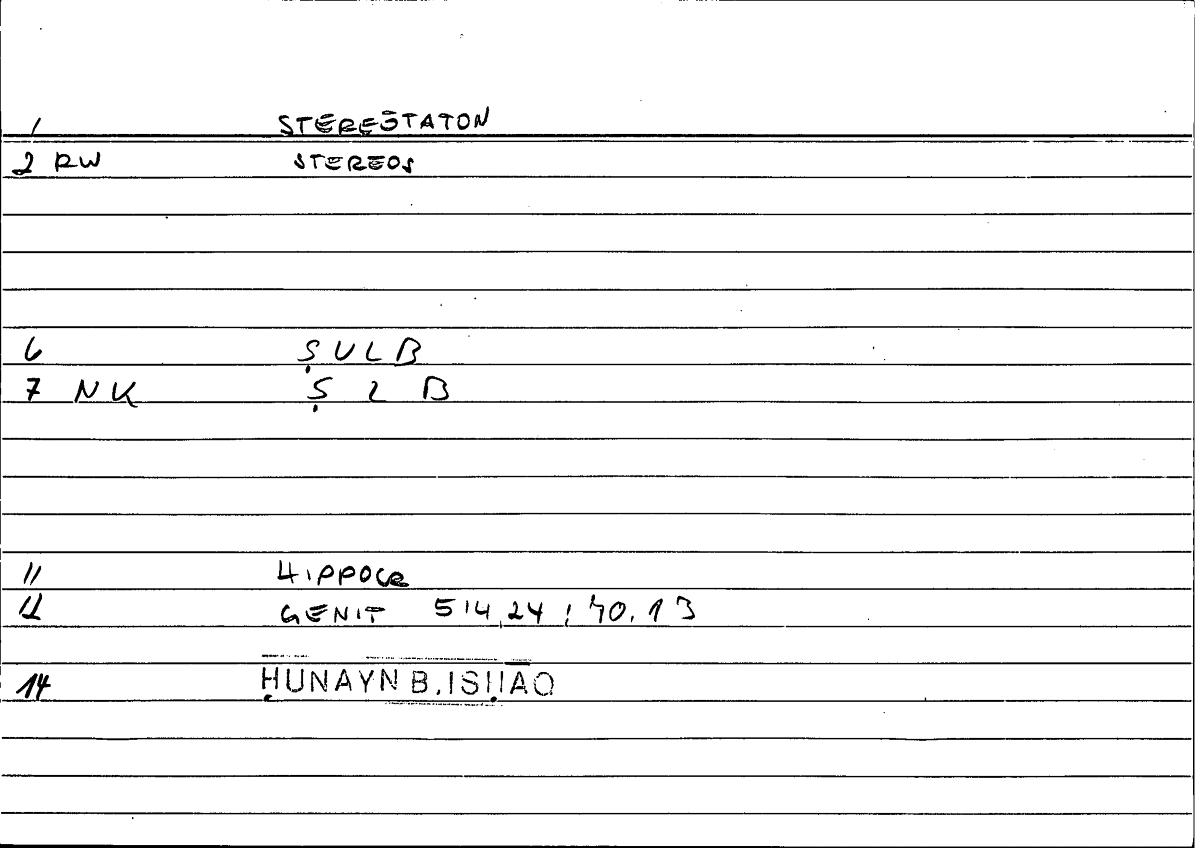 1 STEREŌTATON
2 RW STEREOS
6 ṢULB
7 NK Ṣ L B
11 HIPPOCR
12 GENIT 514,24 ; 70.13
14 ḤUNAYN B. ISḤĀQ